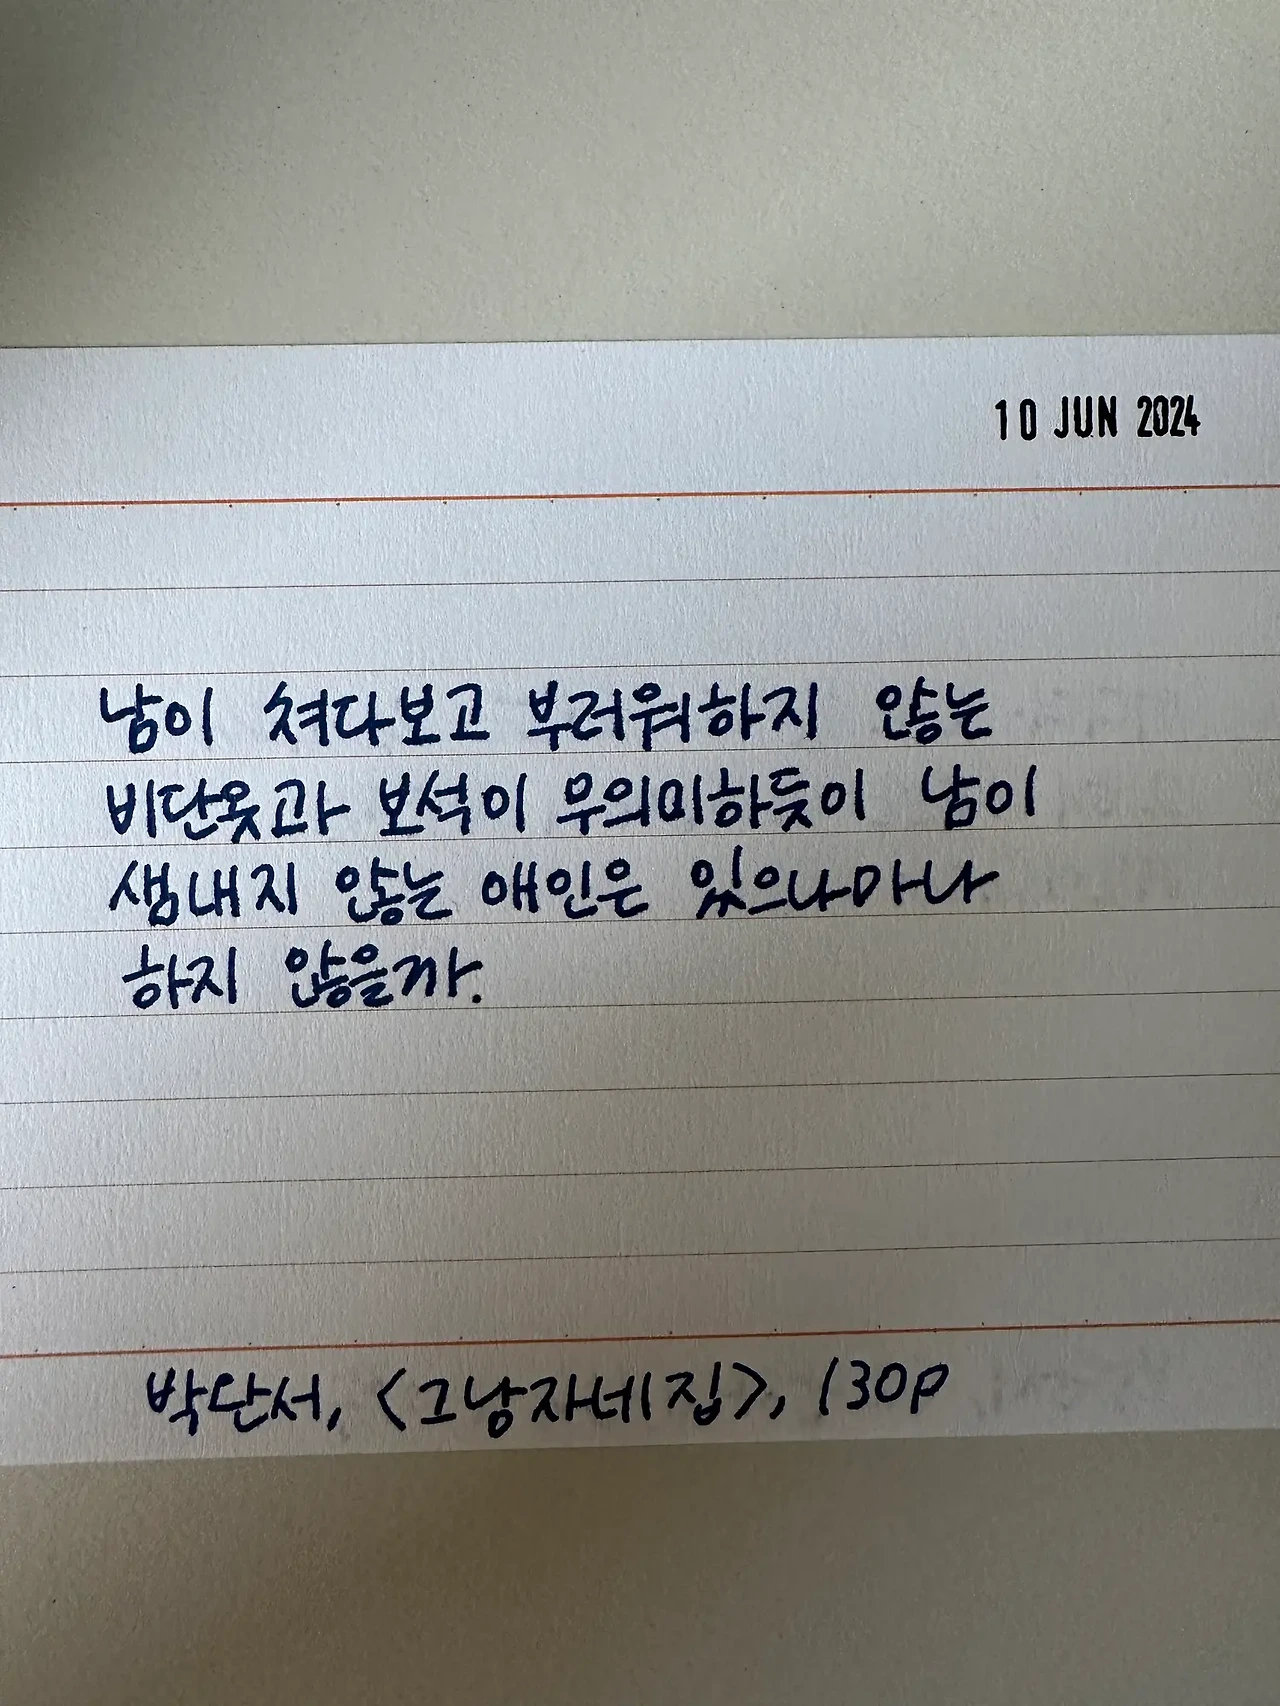 10 JUN 2024
남이 쳐다보고 부러워하지 않는
비단옷과 보석이 무의미하듯이 남이
샘내지 않는 애인은 있으나마나
하지 않을까.
박완서, <그남자네 집>, 130p